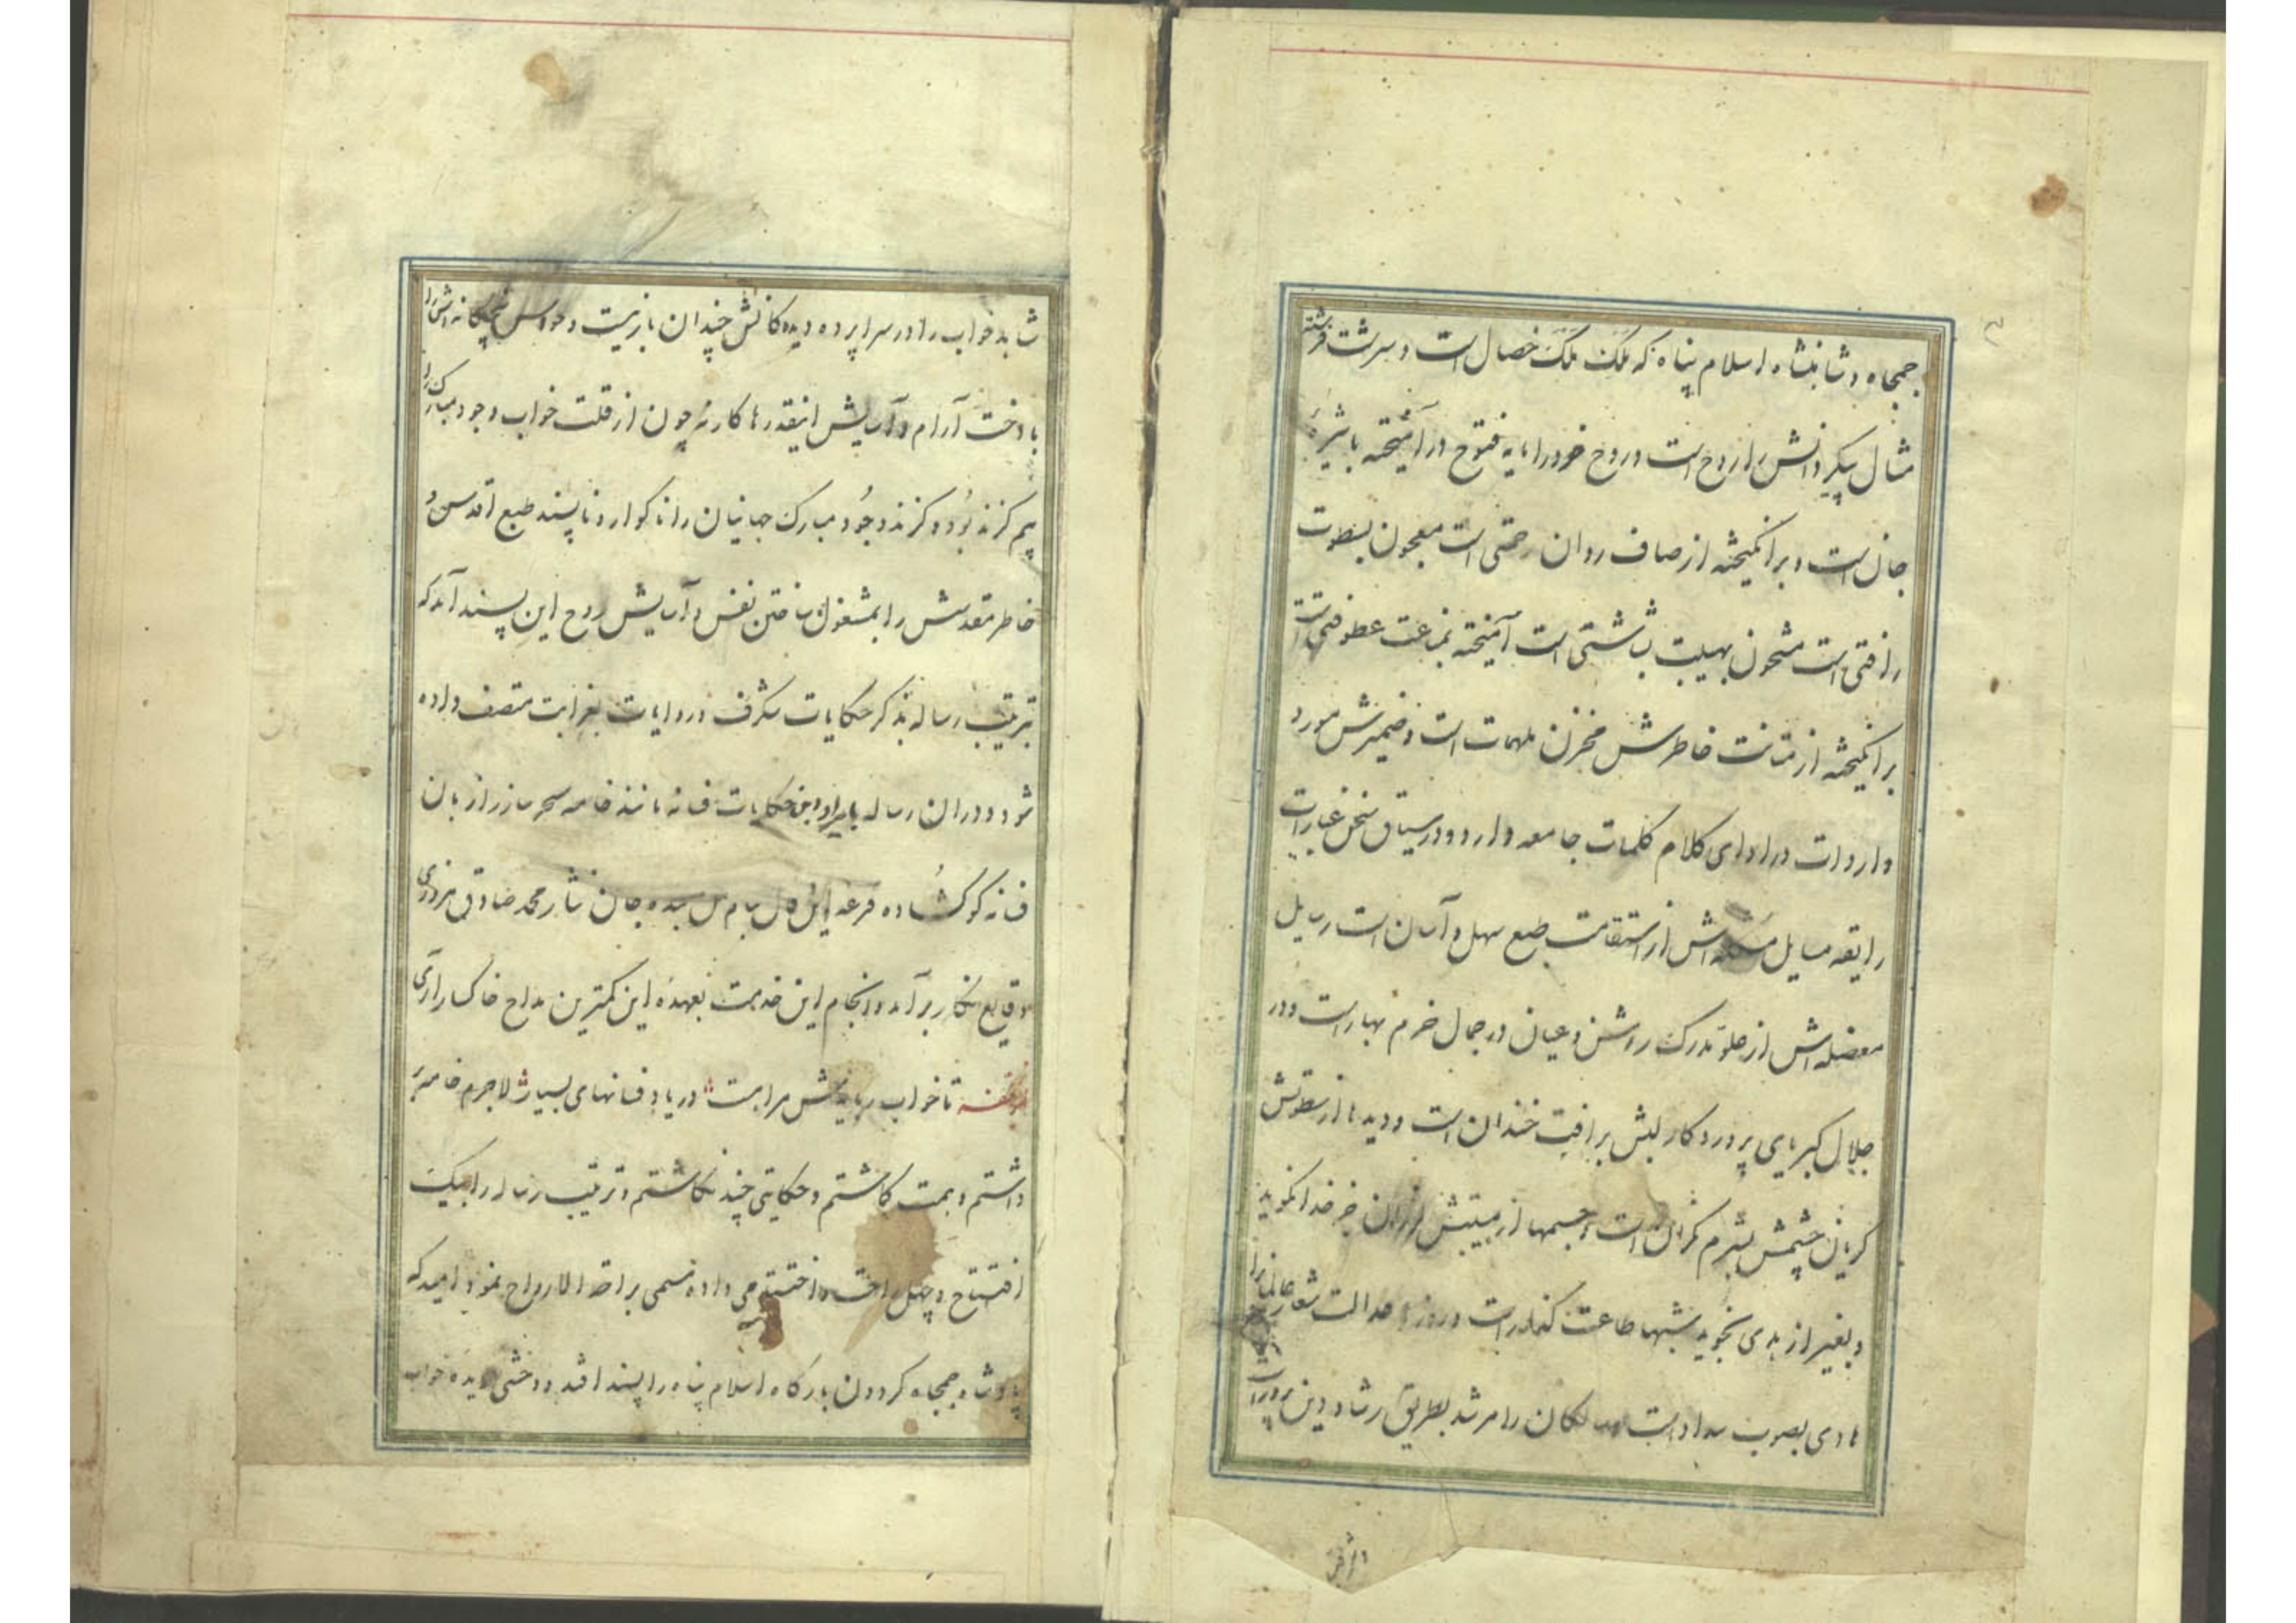 جمجاه و شاهنشاه اسلام پناه که ملک ملک خصال است و سرشت فرشته
مثال پیکر دانش را روح است و روح خرد را مایه فتوح در آمیخته با شیره
جان است و برانگیخته از صاف روان رحمتی است معجون بسطوت
رافتی است مشحون بهیبت بشاشتی است آمیخته بمناعت عطوفتی است
برانگیخته از متانت خاطرش مخزن ملهمات است و ضمیرش مورد
واردات در ادای کلام کلمات جامعه دارد و در سیاق سخن عبارات
رایقه مسایل مشکله اش از استقامت طبع سهل و آسان است رسایل
معضله اش از علو مدرک روشن و عیان در جمال خرم بهار است و در
جلال کبریای پروردگار لبش برافت خندان است و دیدها از سطوتش
گریان چشمش بشرم گران است و جسمها از هیبتش لرزان جز خدا نگوید
و بغیر از هدی نجوید شبها طاعت گذار است و روزها عدالت شعار عالمیان را
هادی بصوب سداد است ملکان را مرشد بطریق رشاد دین پرور است
۳
شاهد خواب را در سراپرده دیدگانش چندان بار نیست و حواس پنجگانه اش را
با دخت آرام و آسایش اینقدرها کار نه چون از قلت خواب وجود مبارک را
بیم گزند بود و گزند وجود مبارک جهانیان را ناگوار و ناپسند طبع اقدس و
خاطر مقدسش را بمشغول ساختن نفس و آسایش روح این پسند آمد که
ترتیب رساله بذکر حکایات شگرف و روایات بغرابت متصف داده
شود و در آن رساله بایراد این حکایات فسانه مانند خامه سحر ساز راز بان
فسانه گو گشاده قرعه این فال بنام بنده جان نثار محمد صادق مروزی
وقایع نگار برآمد و انجام این خدمت بعهده این کمترین مداح خاکسار آری
تا خواب ربایدش مرا هست در یاد فسانهای بسیار لاجرم خامه بر
داشتم و همت گماشتم و حکایتی چند نگاشتم و ترتیب رساله را بیک
افتتاح و چهل و اختتامی داده مسمی براحة الارواح نمود امید که
پادشاه جمجاه گردون بارگاه اسلام پناه را پسند افتد و وحشی دیده خواب